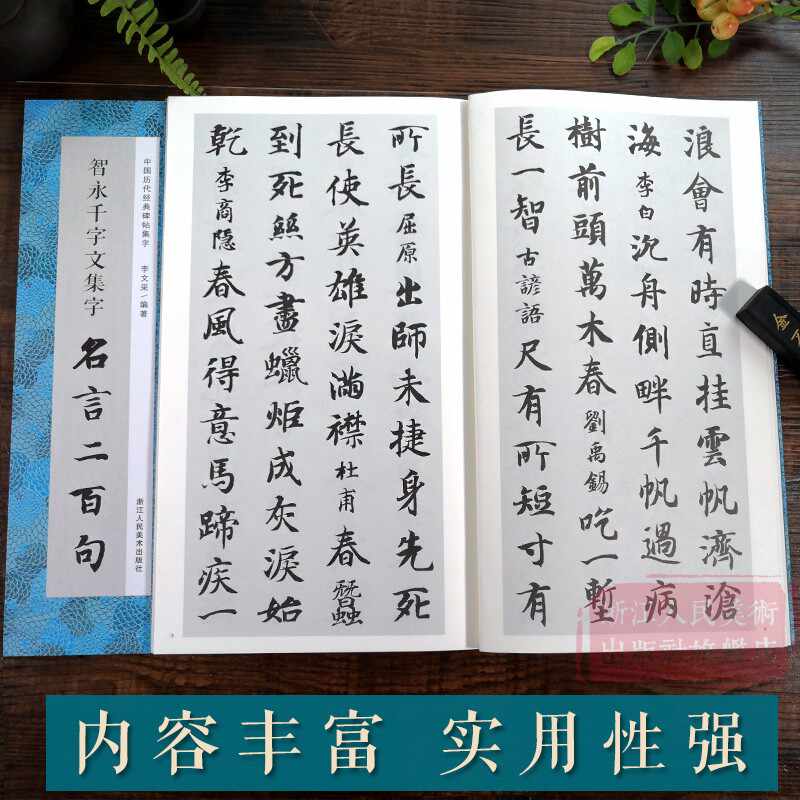 中国历代经典碑帖集字 李文采/编著
浙江人民美术出版社
智永千字文集字
名言二百句
浪會有時直挂雲帆濟滄
海 李白 沉舟側畔千帆過病
樹前頭萬木春 劉禹錫 吃一塹
長一智 古諺語 尺有所短寸有
所長 屈原 出師未捷身先死
長使英雄淚滿襟 杜甫 春蠶
到死絲方盡蠟炬成灰淚始
乾 李商隐 春風得意馬蹄疾一
金
浙江人民美術
出版社旗艦店
内容丰富 实用性强